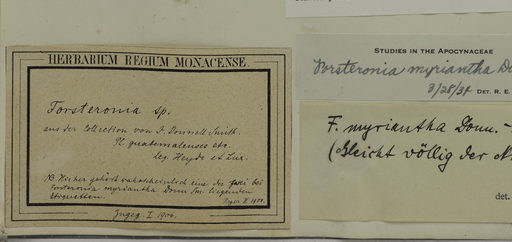 HERBARIUM REGIUM MONACENSE.
Forsteronia sp.
aus der Collection von J. Donnell Smith.
Pl. guatemalenses etc.
leg. Heyde et Lux.
NB. Hieher gehört wahrscheinlich eine der zwei bei
Forsteronia myriantha Donn. Sm. liegenden
Etiquetten.
Ingeg. I. 1900.
STUDIES IN THE APOCYNACEAE
Forsteronia myriantha Do
3/28/34 DET. R. E.
F. myriantha Donn.-
(Gleicht völlig der N.
det.